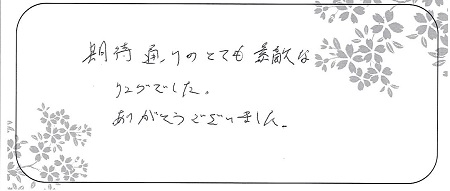 期待通りのとても素敵な
リングでした。
ありがとうございました。